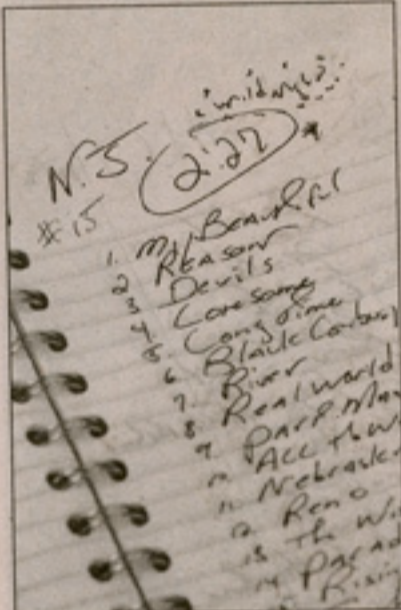 N.J.
2:27
#15
1. My Beautiful
2 Reason
3 Devils
4 Lonesome
5. Long Time
6 Black Cowboy
7. River
8. Real World
9. Part Man
10. All Th
11. Nebraska
12. Reno
13 The Wi
14 Parad
Rising